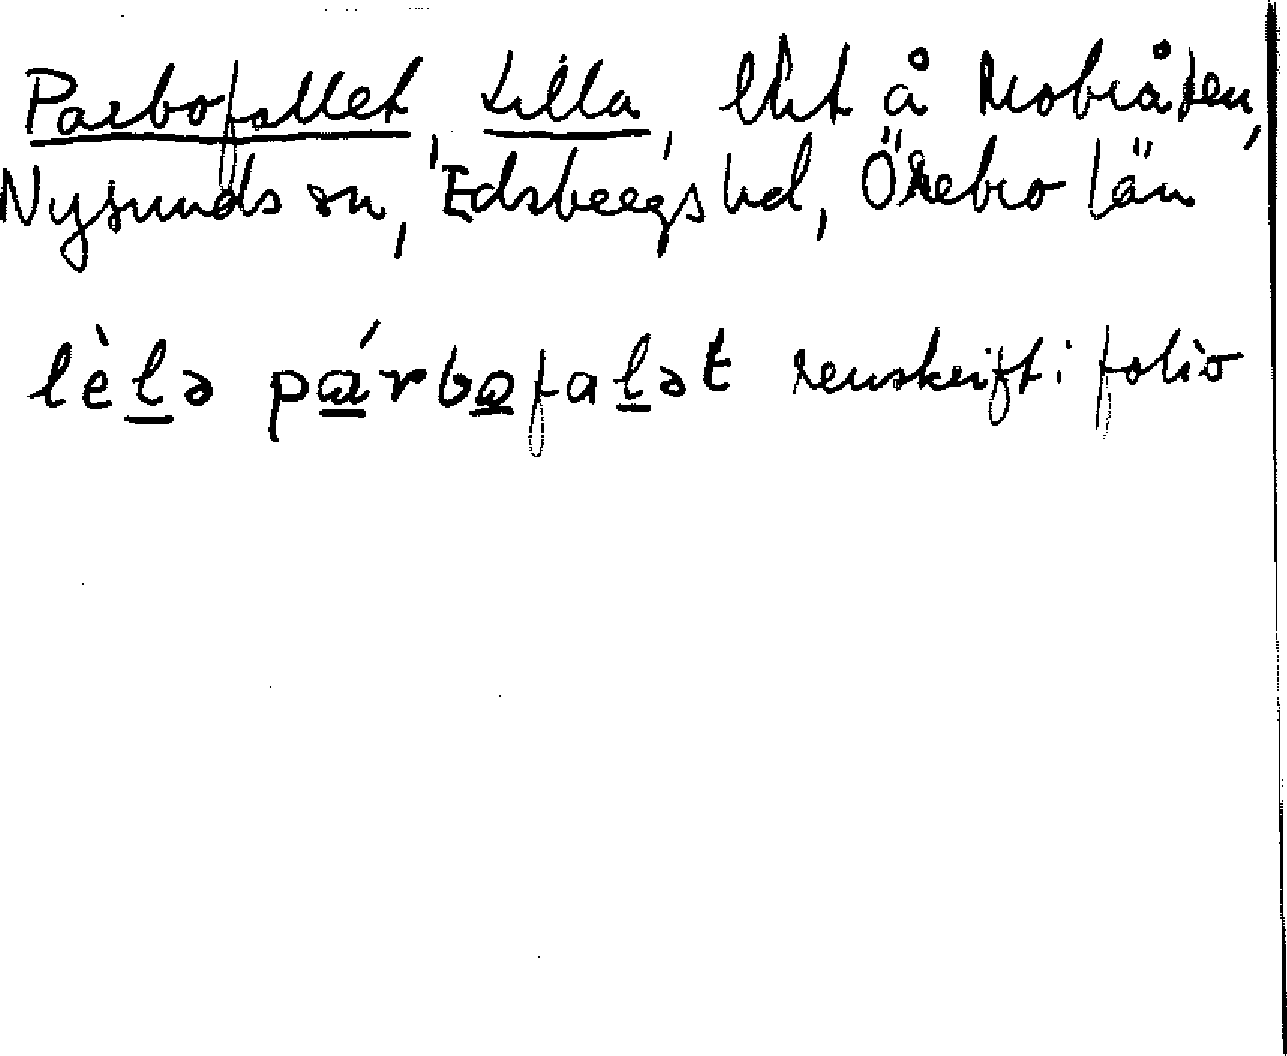 Parbofallet, Lilla, lht å Mobråten,
Nysunds sn, Edsbergs hd, Örebro län
lèlə párbofalət renskrift i folio